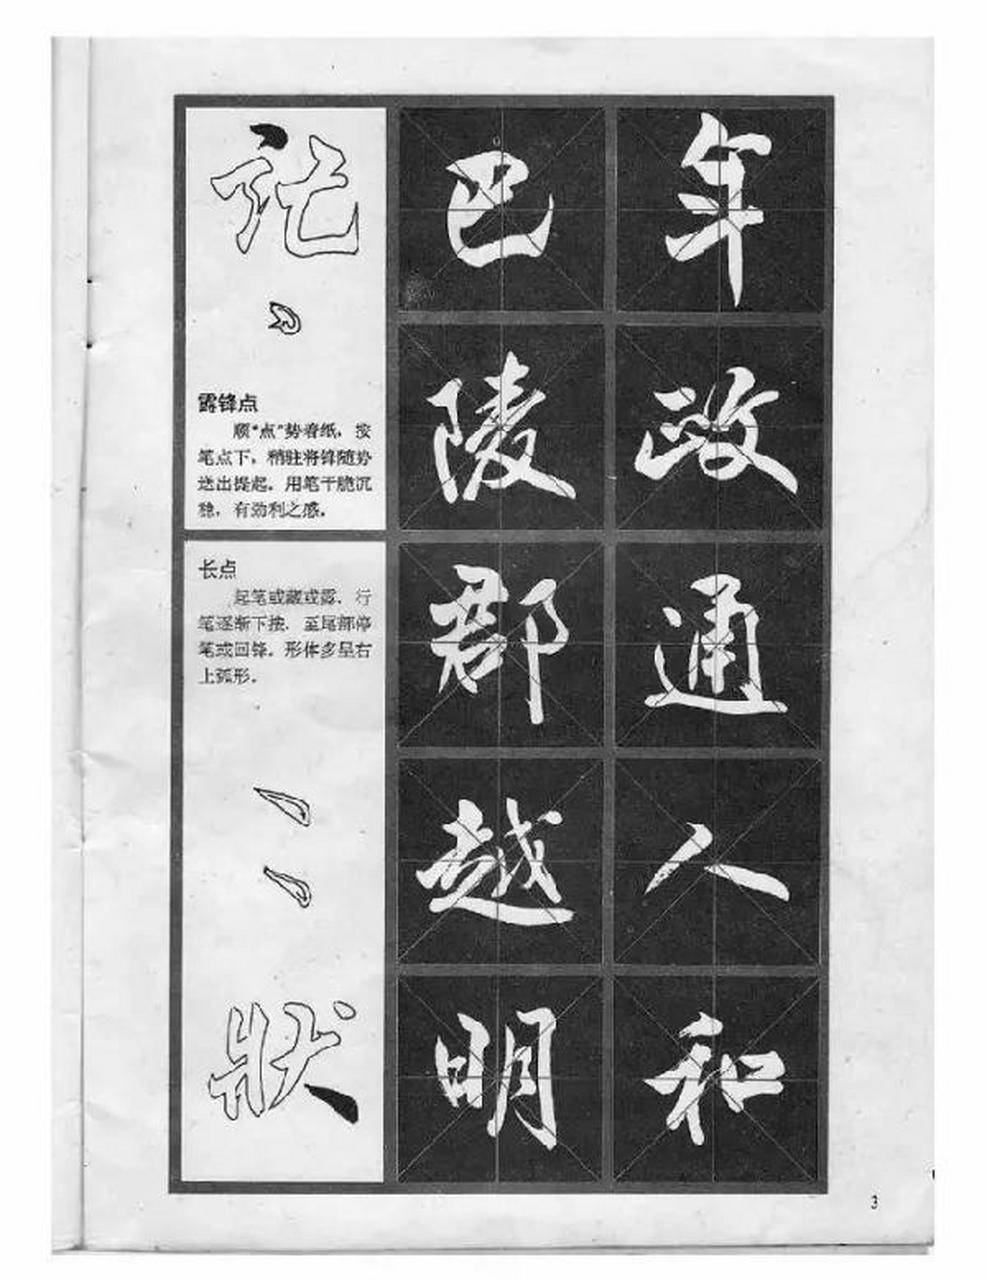 年
政
通
人
和
巴
陵
郡
越
明
记
露锋点
顺“点”势着纸，按
笔点下，稍驻将锋随势
送出提起。用笔干脆沉
稳，有劲利之感。
长点
起笔或藏或露，行
笔逐渐下按，至尾部停
笔或回锋。形体多呈右
上弧形。
狀
3